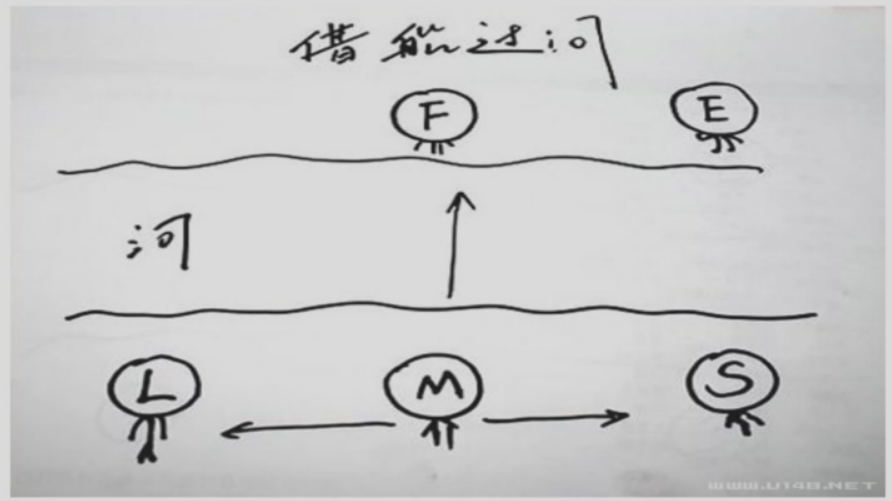 借船过河
F E
河
L M S
WWW.U148.NET